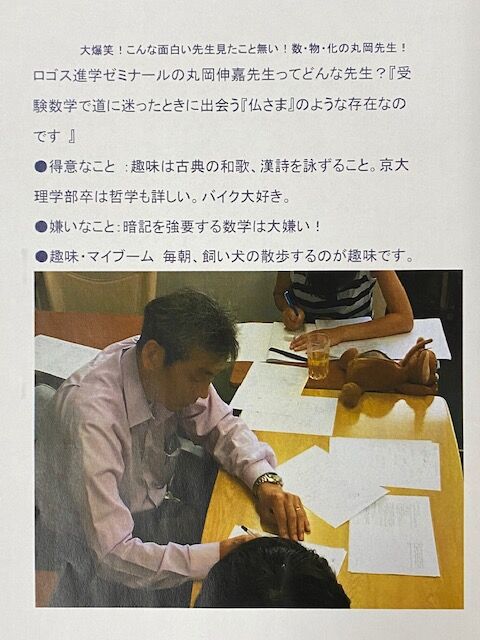 大爆笑！こんな面白い先生見たこと無い！数・物・化の丸岡先生！
ロゴス進学ゼミナールの丸岡伸嘉先生ってどんな先生？『受
験数学で道に迷ったときに出会う『仏さま』のような存在なの
です 』
●得意なこと ：趣味は古典の和歌、漢詩を詠ずること。京大
理学部卒は哲学も詳しい。バイク大好き。
●嫌いなこと：暗記を強要する数学は大嫌い！
●趣味・マイブーム 毎朝、飼い犬の散歩するのが趣味です。